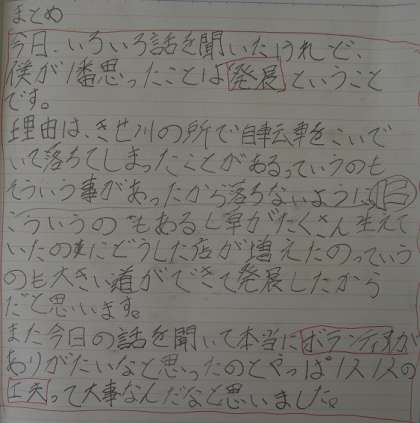 まとめ
今日、いろいろ話を聞いたけれど、
僕が1番思ったことは発展ということ
です。
理由は、きせ川の所で自転車をこいで
いて落ちてしまったことがあるっていうのも
そういう事があったから落ちないように
こういうのもあるし草がたくさん生えて
いたのにどうした店が増えたのっていう
のも大きい道ができて発展したから
だと思います。
また今日の話を聞いて本当にボランティアが
ありがたいなと思ったのとやっぱ1人1人の
工夫って大事なんだなと思いました。